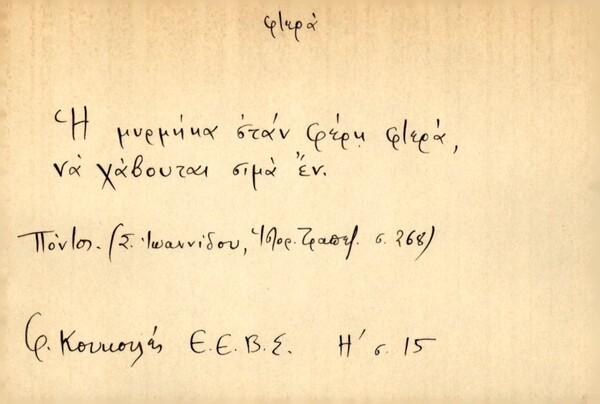 φτερά
Ἡ μυρμήκα ὁτάν φέρῃ φτερά,
νὰ χάβουται σιμὰ ἔν.
Πόντος. (Σ. Ἰωαννίδου, Ἱστορ. Τραπεζ. σ. 268)
Φ. Κουκουλές Ε.Ε.Β.Σ. Η' σ. 15